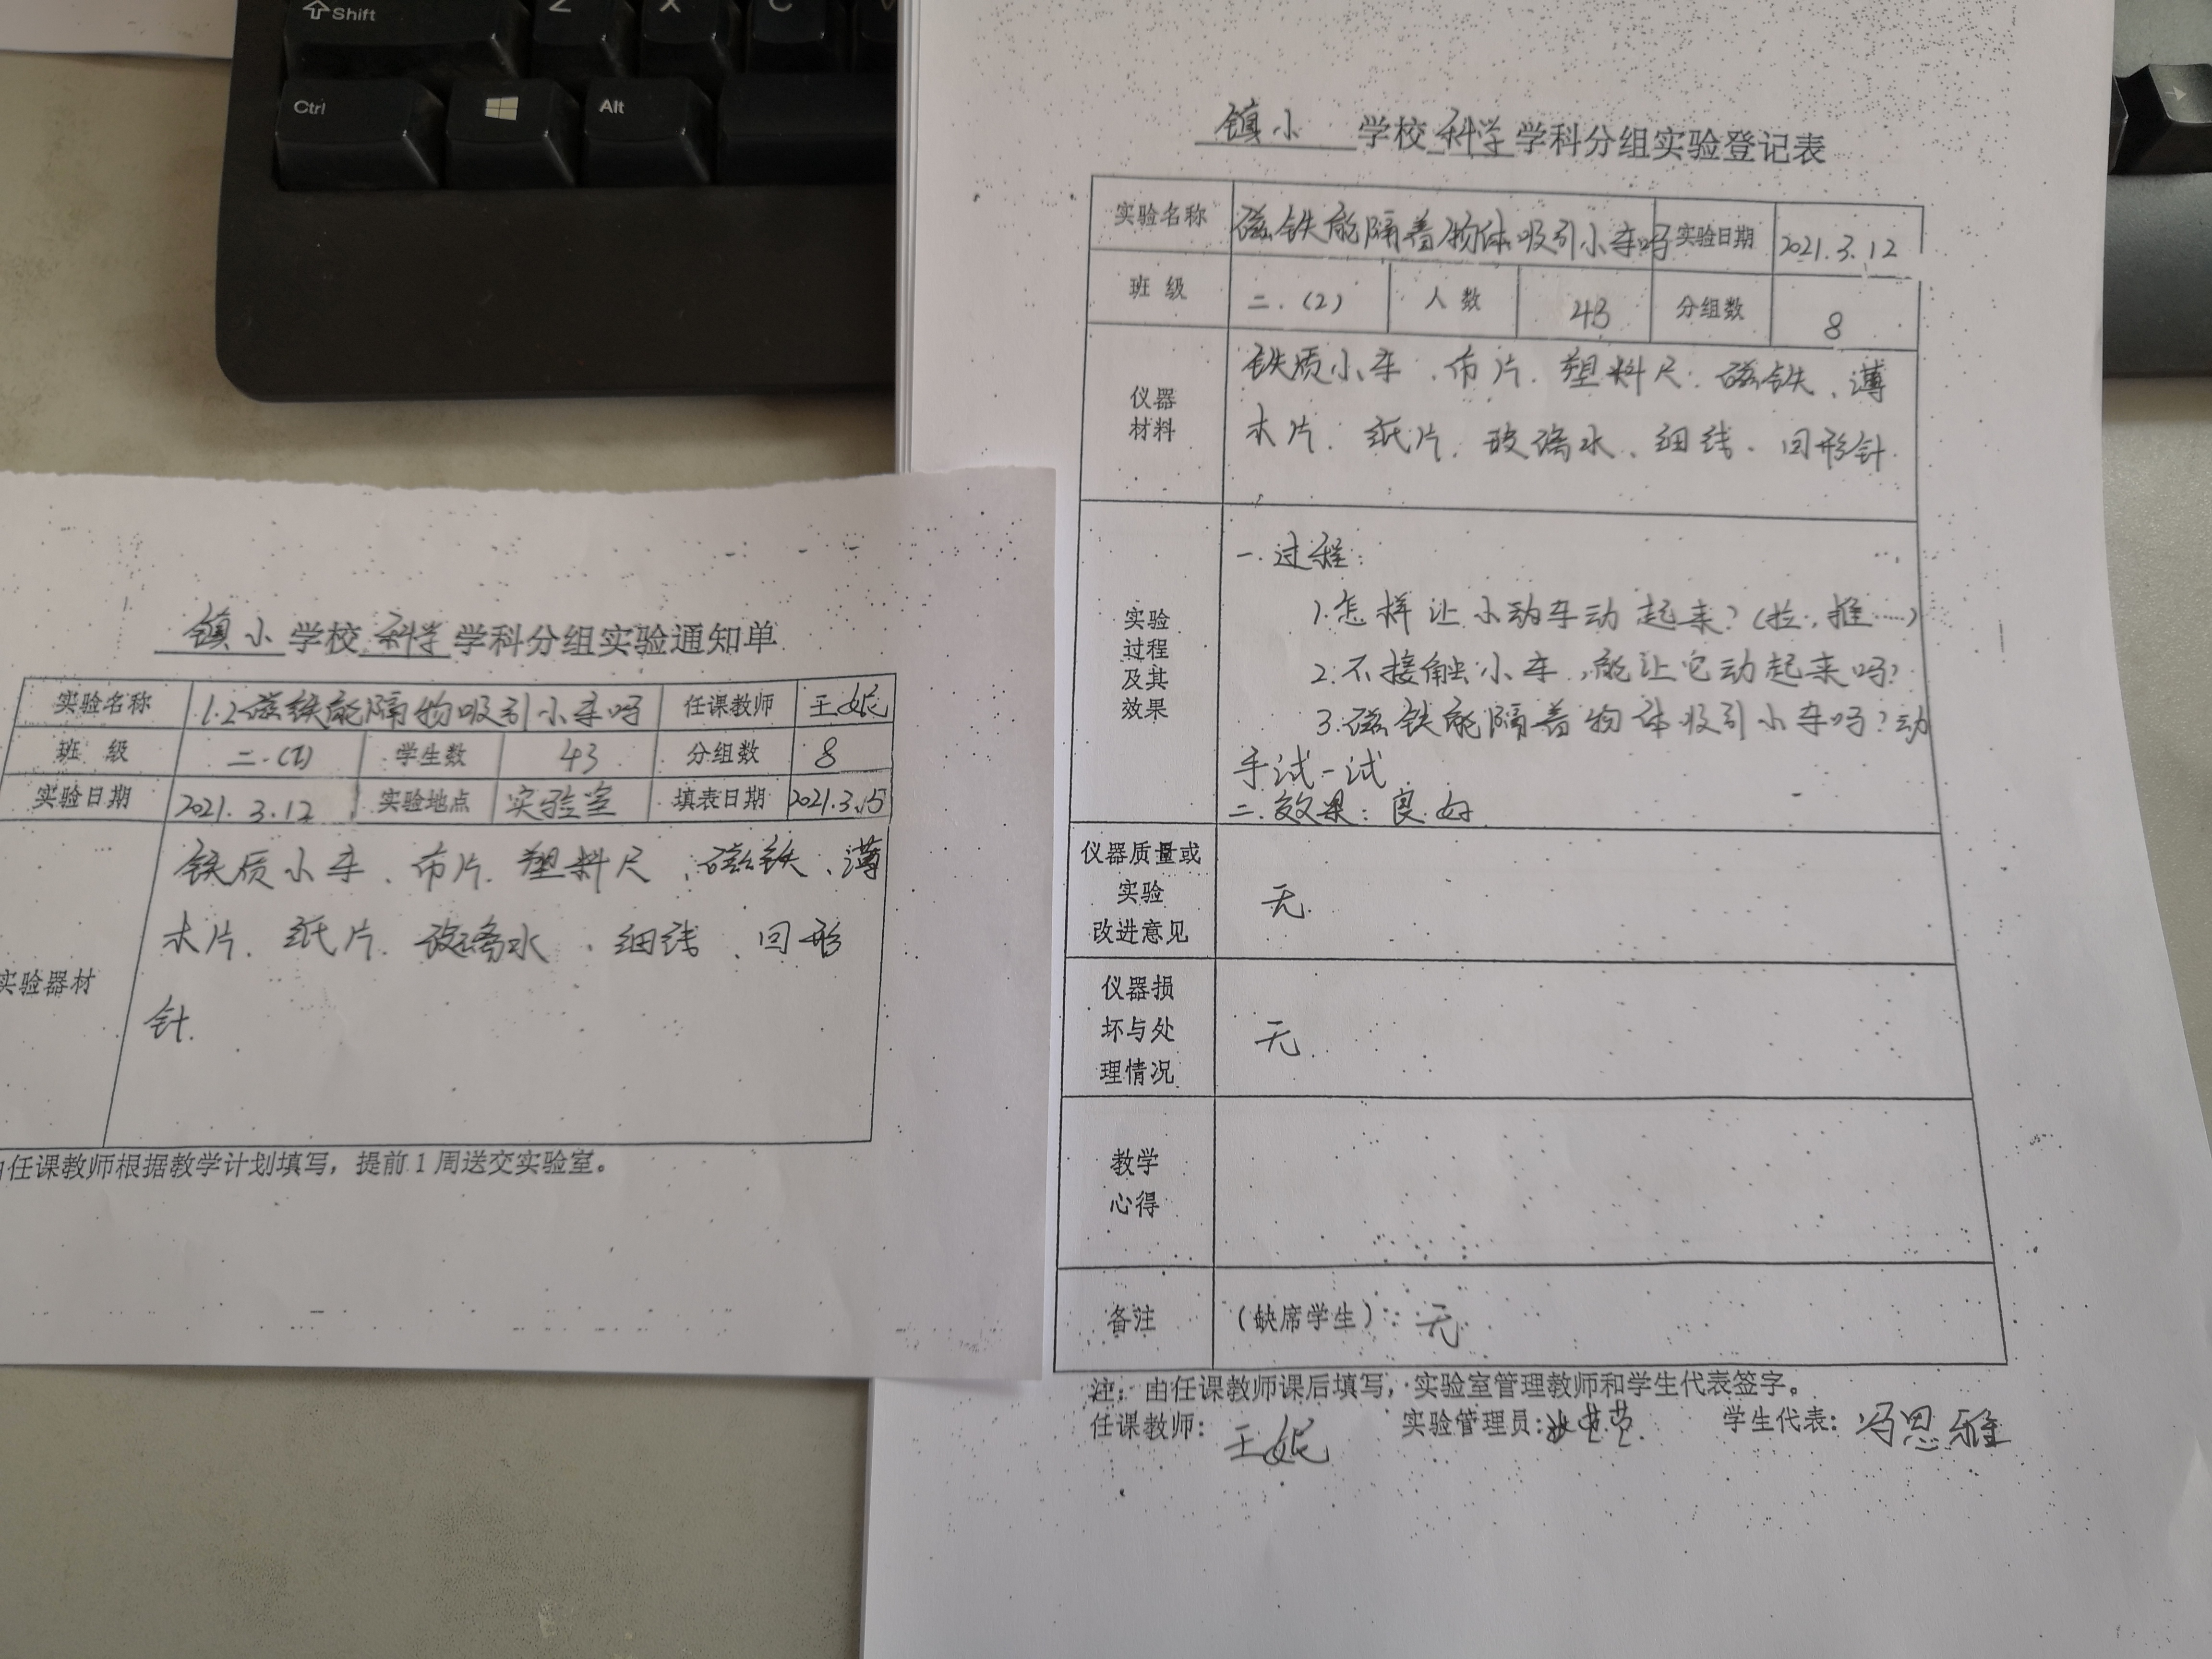 Shift
Z X C
Ctrl Alt
镇小 学校 科学 学科分组实验登记表
实验名称 磁铁能隔着物体吸引小车吗 实验日期 2021.3.12
班 级 二.(2) 人 数 43 分组数 8
仪器
材料
铁质小车、布片、塑料尺、磁铁、薄
木片、纸片、玻璃水、细线、回形针
实验
过程
及其
效果
一.过程:
1.怎样让小动车动起来?(拉,推……)
2.不接触小车,能让它动起来吗?
3.磁铁能隔着物体吸引小车吗?动
手试一试
二.效果:良好
仪器质量或
实验
改进意见
无.
仪器损
坏与处
理情况
无.
教学
心得
备注 (缺席学生):无
注:由任课教师课后填写,实验室管理教师和学生代表签字。
任课教师:王妮 实验管理员: 学生代表:冯思雅
镇小 学校 科学 学科分组实验通知单
实验名称 1.2磁铁能隔物吸引小车吗 任课教师 王妮
班 级 二.() 学生数 43 分组数 8
实验日期 2021.3.12 实验地点 实验室 填表日期 2021.3.15
实验器材
铁质小车、布片、塑料尺、磁铁、薄
木片、纸片、玻璃水、细线、回形
针.
由任课教师根据教学计划填写,提前1周送交实验室。